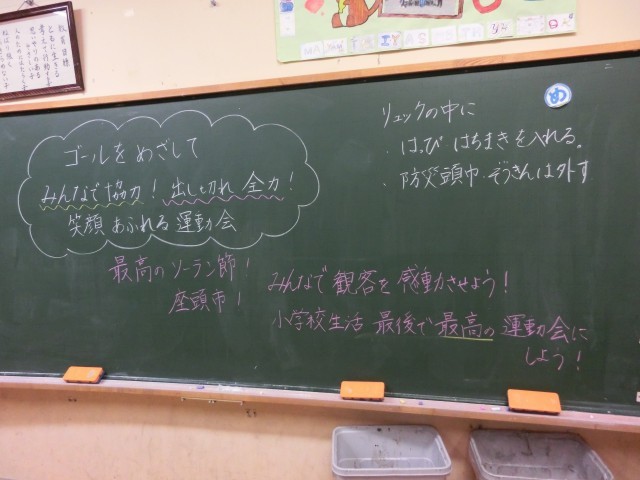 教育目標
ゴールをめざして
みんなで協力！出し切れ全力！
笑顔あふれる運動会
最高のソーラン節！
座頭市！
リュックの中に
・はっぴ はちまきを入れる。
・防災頭巾・ぞうきんは外す
め
みんなで観客を感動させよう！
小学校生活 最後で最高の運動会に
しよう！